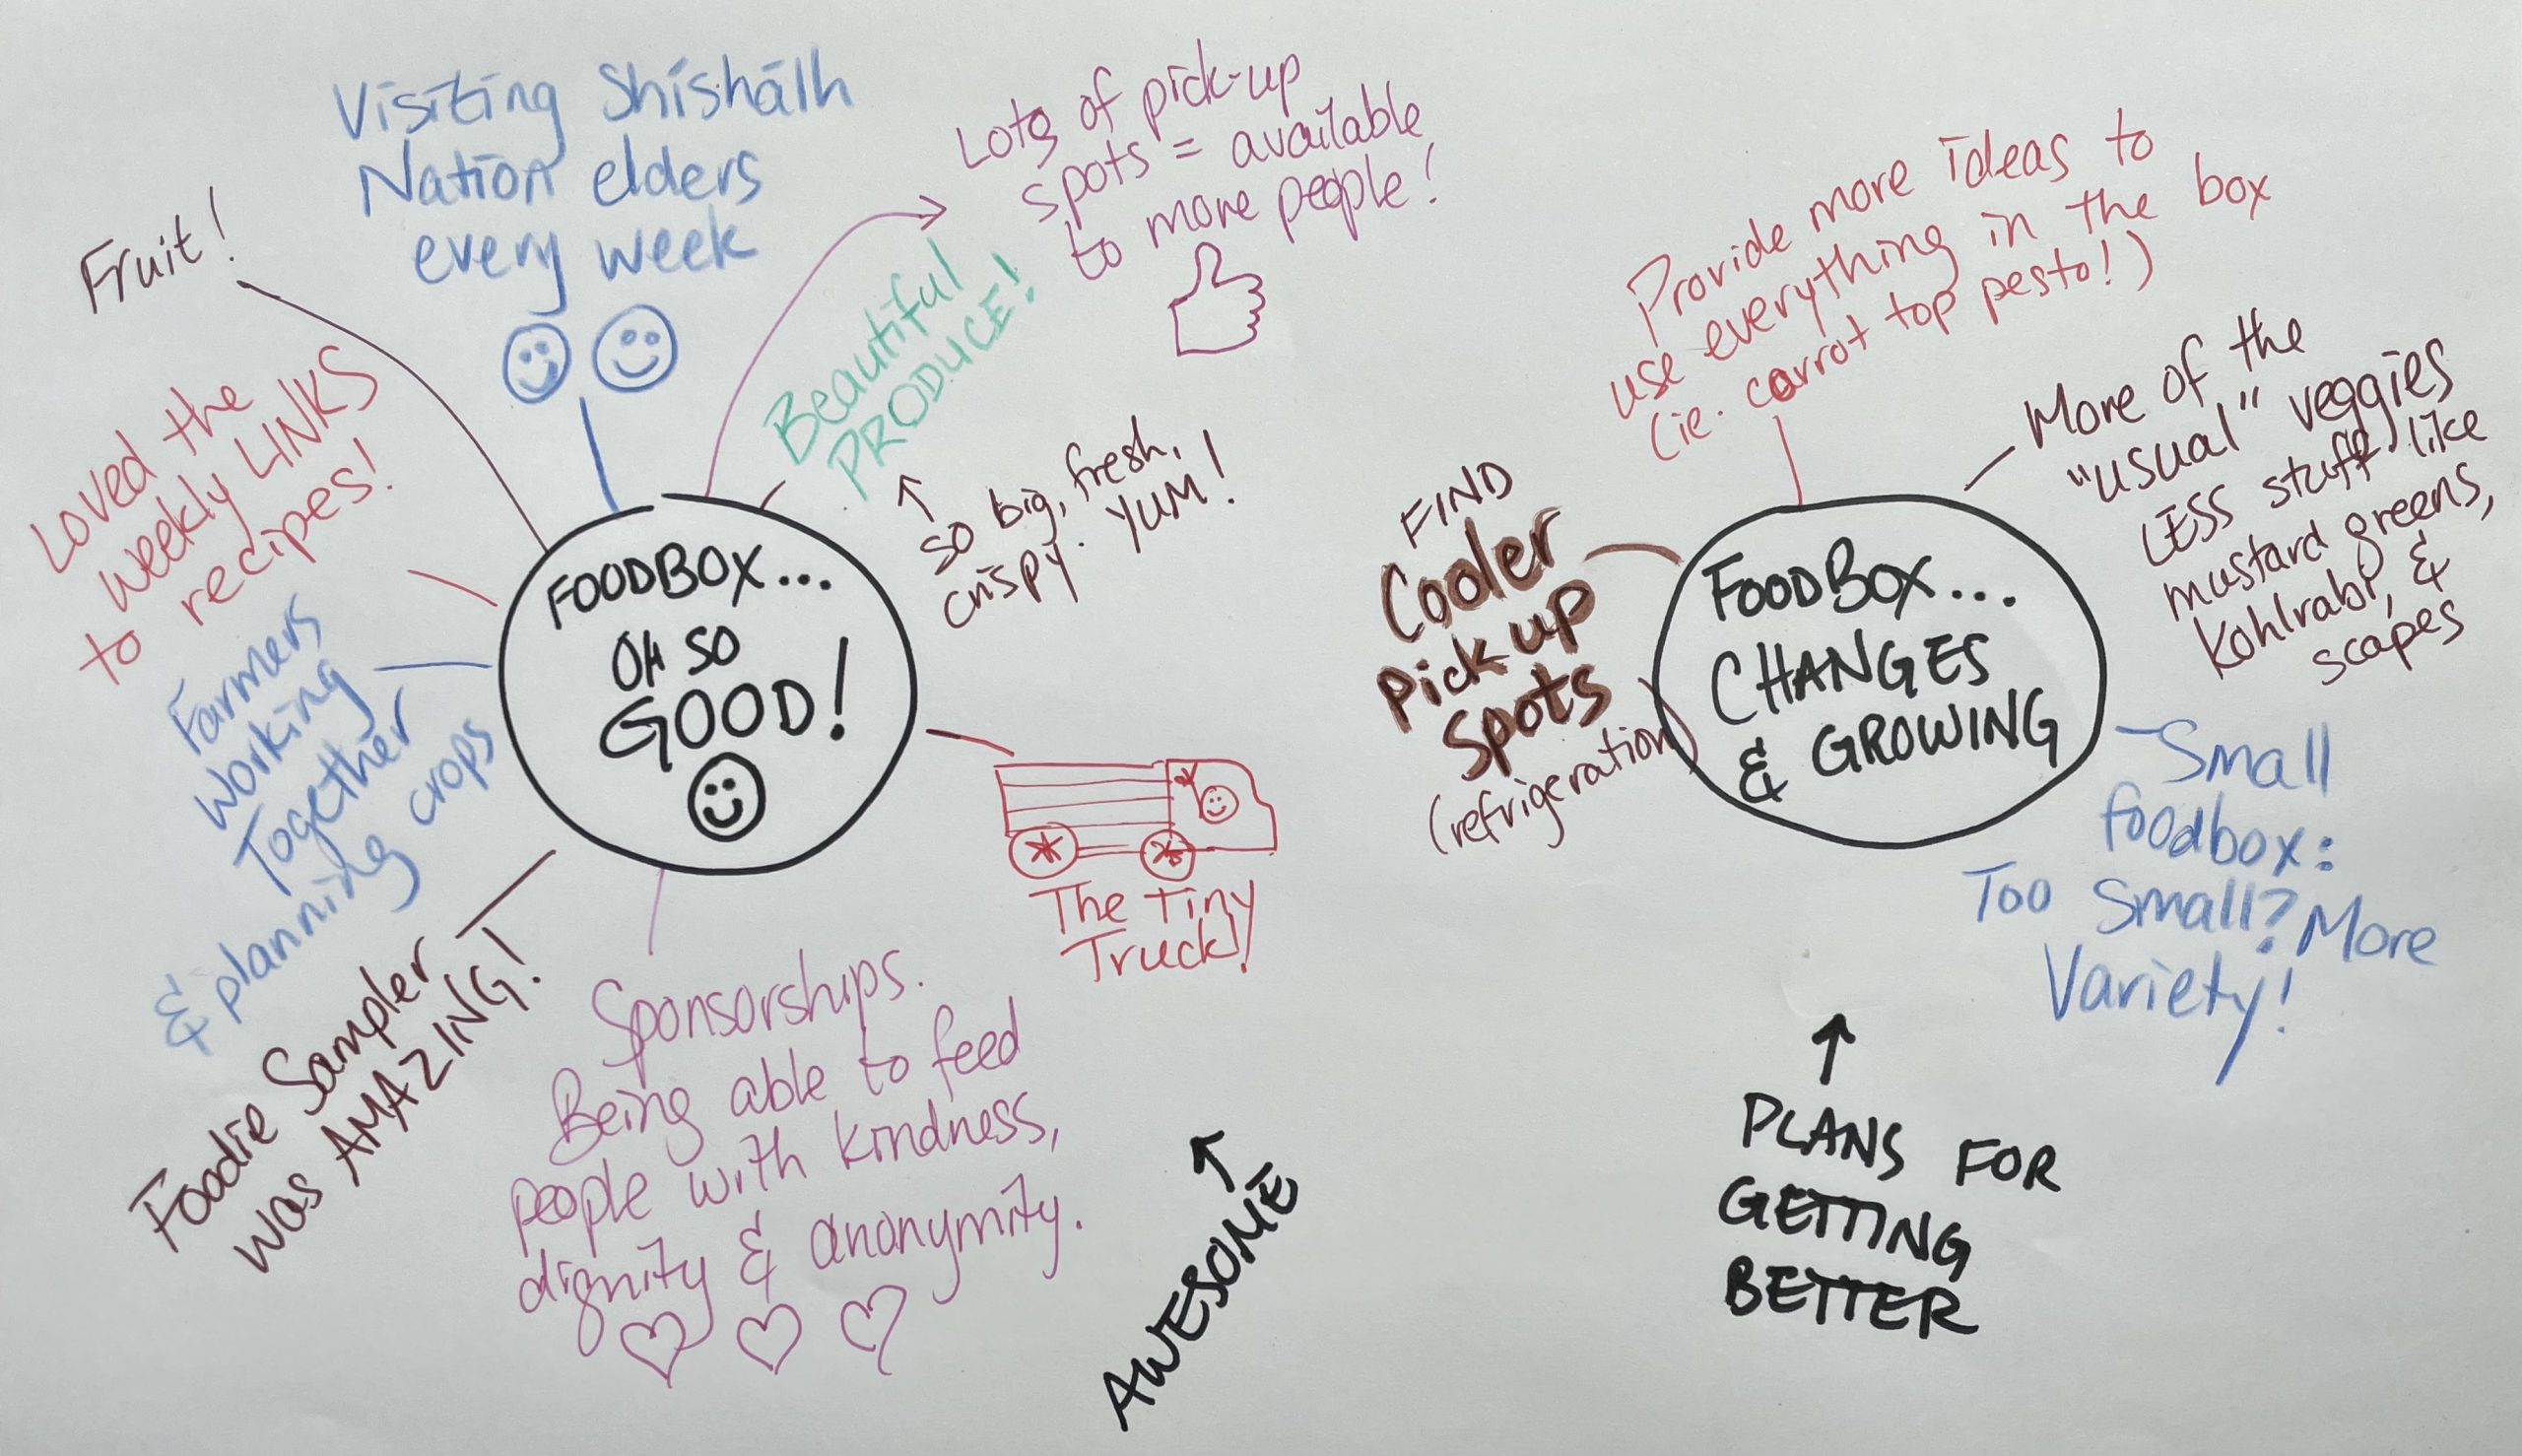 Fruit!
Visiting Shíshálh
Nation elders
every week
Lots of pick-up
spots = available
to more people!
Beautiful
PRODUCE!
↑
so big, fresh,
crispy. YUM!
Loved the
weekly LINKS
to recipes!
FOODBOX...
OH SO
GOOD!
Farmers
working
Together
& planning crops
The Tiny
Truck!
Foodie Sampler
was AMAZING!
Sponsorships.
Being able to feed
people with kindness,
dignity & anonymity.
↑
AWESOME
Provide more ideas to
use everything in the box
(ie. carrot top pesto!)
More of the
"usual" veggies
LESS stuff like
mustard greens,
Kohlrabi, &
scapes
FIND
Cooler
Pick up
Spots
(refrigeration)
FOODBOX...
CHANGES
& GROWING
Small
foodbox:
Too Small? More
Variety!
↑
PLANS FOR
GETTING
BETTER